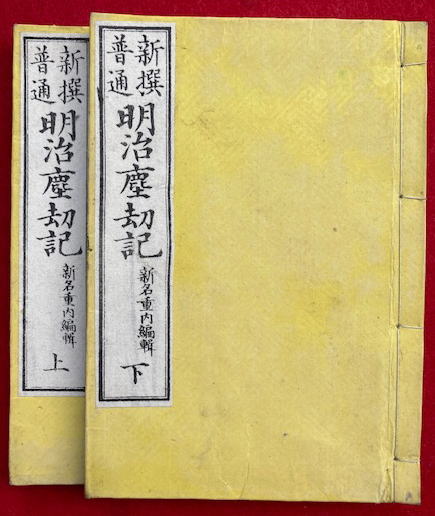 新撰
普通
明治塵劫記
新名重内編輯
下
新撰
普通
明治塵劫記
新名重内編輯
上